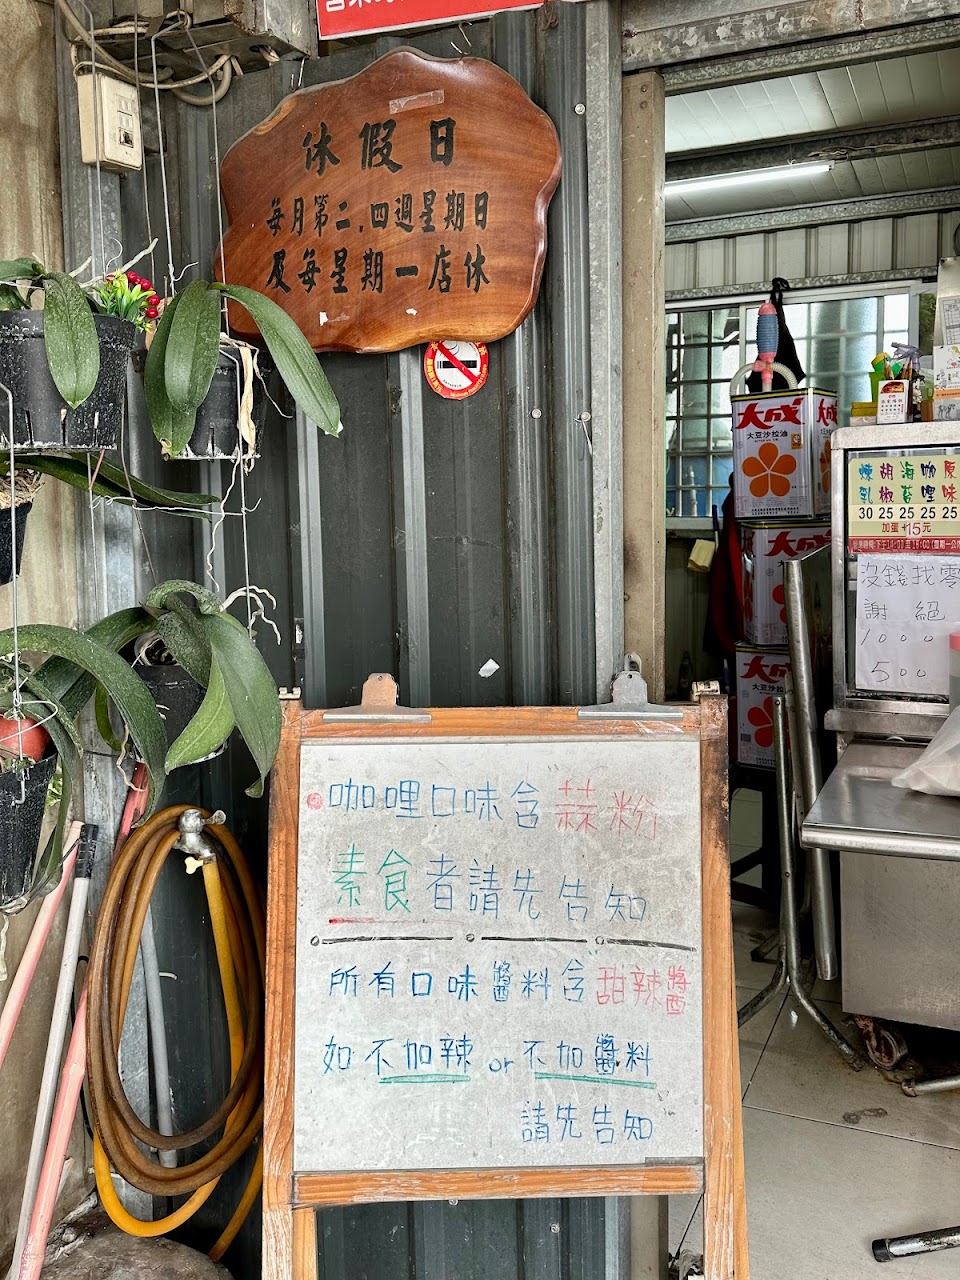 休假日
每月第二.四週星期日
及每星期一店休
大成
大豆沙拉油
大成
大成
煉乳 胡椒 海苔 咖哩 原味
30 25 25 25 25
加蛋+15元
沒錢找零
謝絕
1000
500
咖哩口味含蒜粉
素食者請先告知
所有口味醬料含甜辣醬
如不加辣 or 不加醬料
請先告知